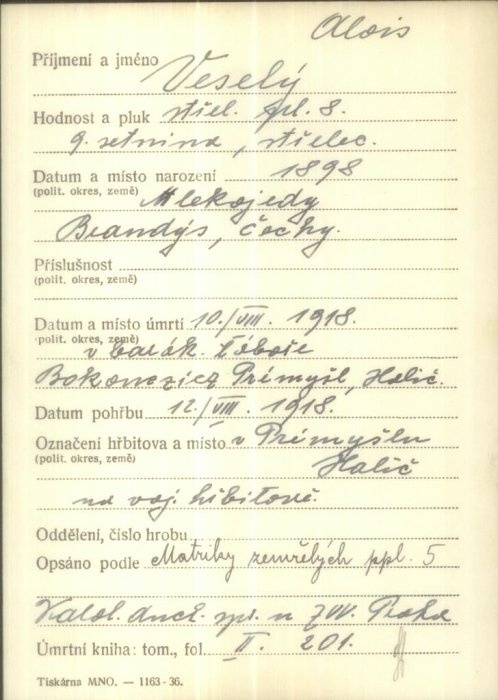 Alois
Příjmení a jméno Veselý
Hodnost a pluk střel. pl. 8.
9. setnina, střelec.
Datum a místo narození 1898
(polit. okres, země) Mlekojedy
Brandýs, Čechy.
Příslušnost
(polit. okres, země)
Datum a místo úmrtí 10./VIII. 1918.
(polit. okres, země)
v barák. táboře
Bokonczice Přemyšl, Halič.
Datum pohřbu 12./VIII. 1918.
Označení hřbitova a místo v Přemyšlu
(polit. okres, země) Halič
na voj. hřbitově.
Oddělení, číslo hrobu
Opsáno podle Matriky zemřelých ppl. 5
Katol. duch. spr. u ZVV. Praha
Úmrtní kniha: tom., fol. II. 201.
Tiskárna MNO. — 1163-36.